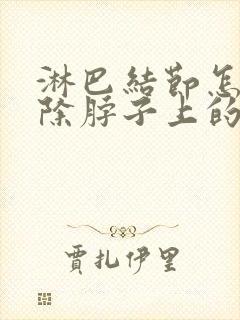 淋巴結節怎
除脖子上的
賈扎伊里